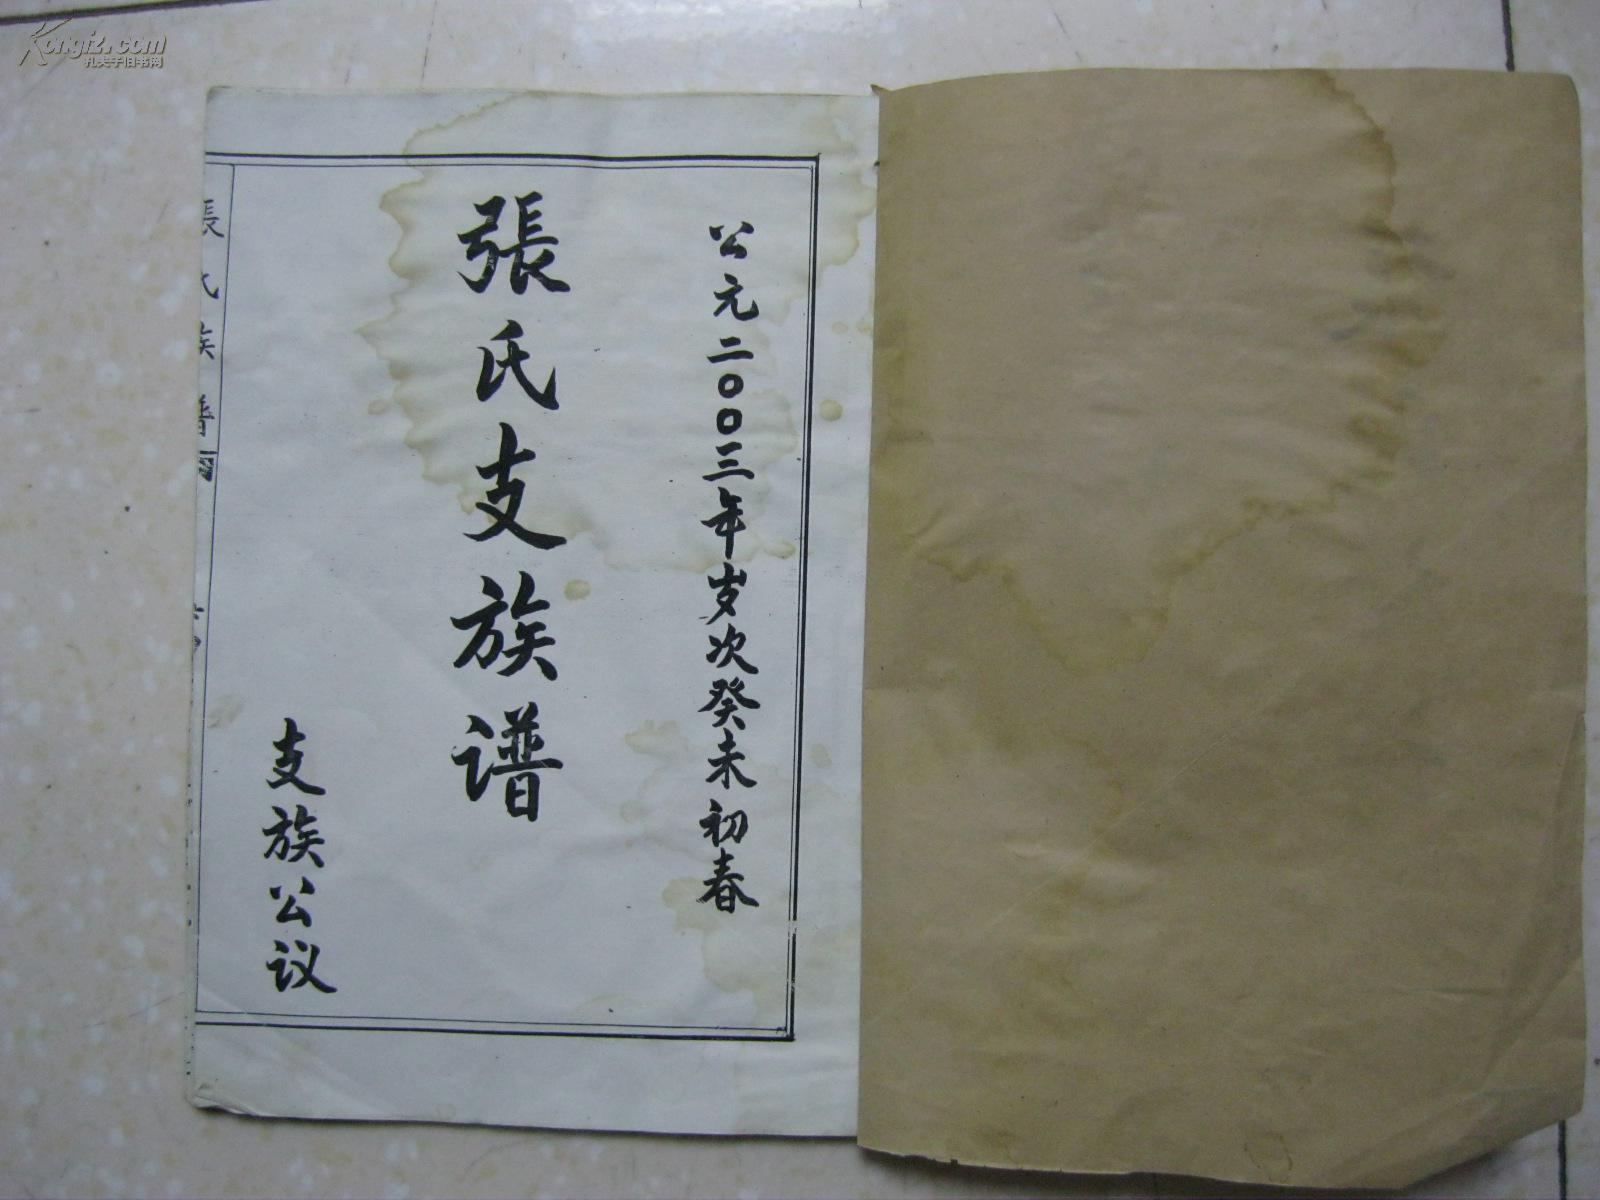 公元二〇〇三年岁次癸未初春
張氏支族谱
支族公议
張氏族譜
Kongfz.com
孔夫子旧书网